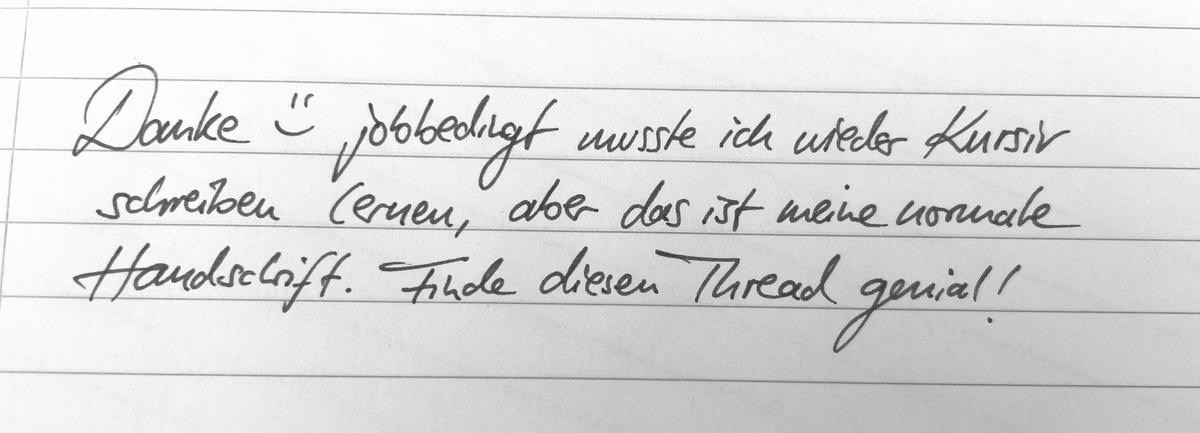 Danke :) jobbedingt musste ich wieder Kursiv
schreiben lernen, aber das ist meine normale
Handschrift. Finde diesen Thread genial!